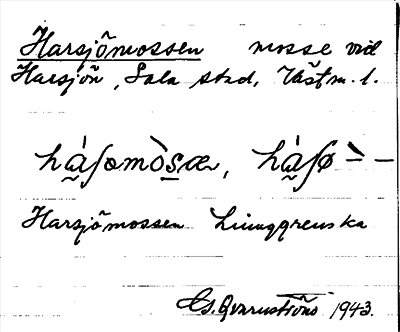 Harsjömossen mosse vid
Harsjön, Sala stad, Västm. l.
hà̰ʃɷmòs̱æ, hà̰ʃø ̀– –
Harsjömossen Ljunggrenska
1943.